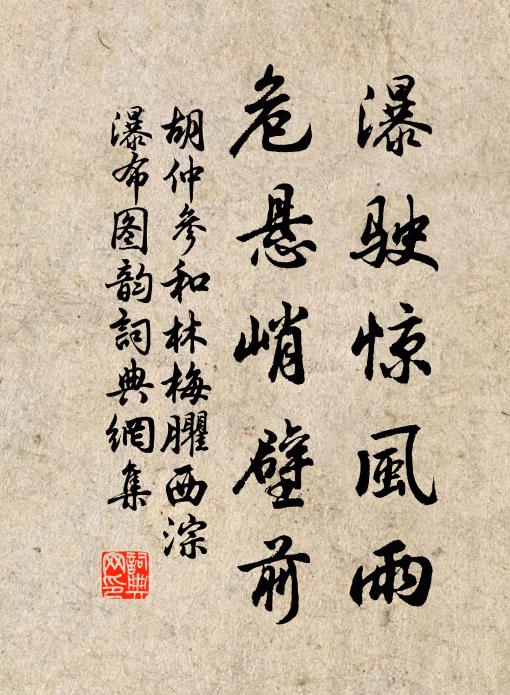 瀑駛惊風雨
危悬峭壁前
胡仲參和林梅臞西淙
瀑布图韵詞典網集
詞典网印